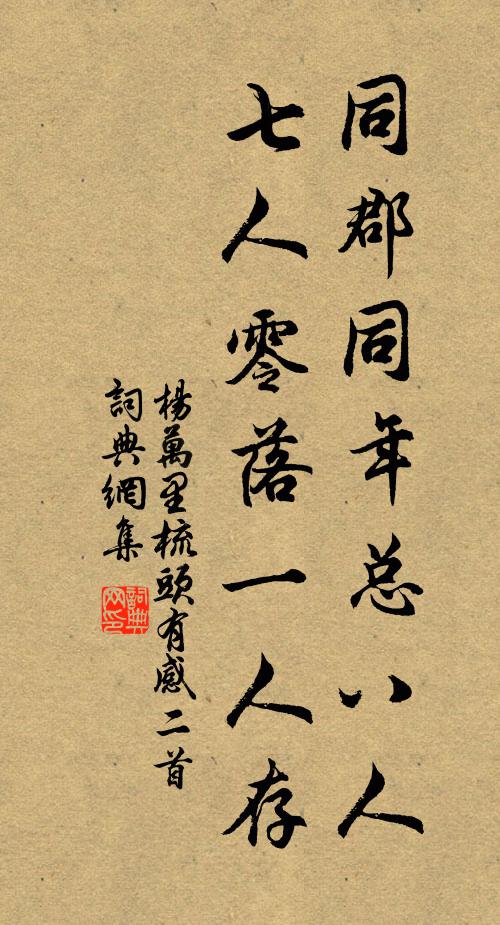 同郡同年总八人
七人零落一人存
楊萬里梳頭有感二首
詞典網集
詞典网印